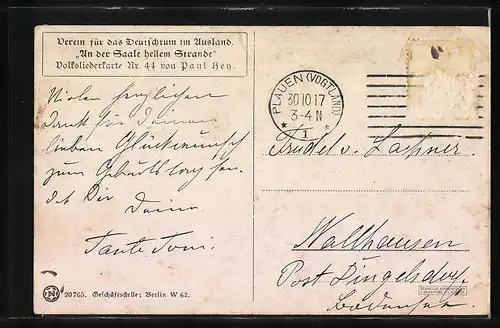 Verein für das Deutschtum im Ausland.
"An der Saale hellem Strande"
Volksliederkarte Nr. 44 von Paul Hey.
Vielen herzlichen
Dank für Deinen
lieben Glückwunsch
zum Geburtstag
Dir Deine
Tante Toni.
20765. Geschäftsstelle: Berlin W 62.
PLAUEN (VOGTLAND)
30 10 17
3-4 N
* 1 *
Trudel v.
Wallhausen
Post Dingelsdorf
Bodensee